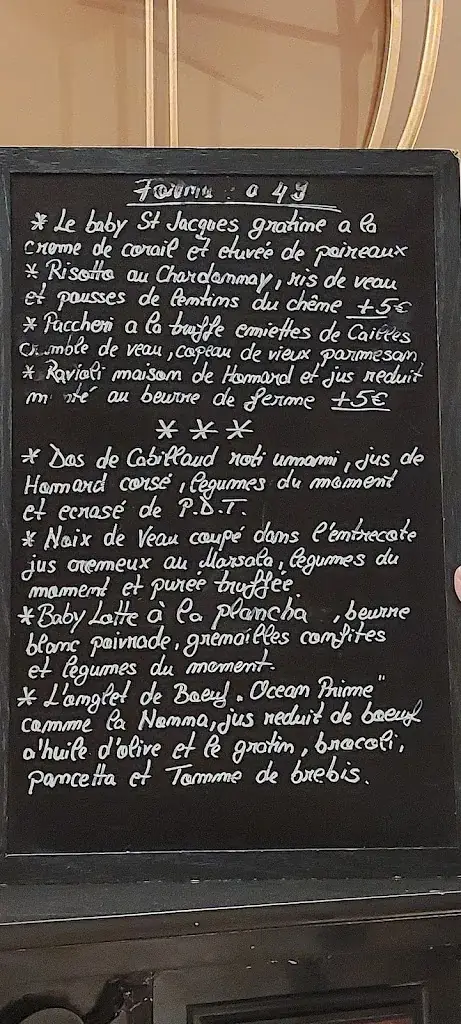 à 49
* Le baby St Jacques gratine a la
creme de corail et etuvée de poireaux
* Risotto au Chardonnay, ris de veau
et pousses de lentins du chêne +5€
* Paccheri a la truffe emiettes de Cailles
Crumble de veau, copeau de vieux parmesan
* Ravioli maison de Homard et jus reduit
monté au beurre de ferme +5€
* * *
* Dos de Cabillaud roti umami, jus de
Homard corsé, legumes du moment
et ecrasé de P.D.T.
* Noix de Veau coupé dans l'entrecote
jus cremeux au Marsala, legumes du
moment et purée truffée
* Baby Lotte à la plancha, beurre
blanc poivrade, grenailles confites
et legumes du moment.
* L'onglet de Boeuf. Ocean Prime"
comme la Nonna, jus reduit de boeuf
a'huile d'olive et le gratin, brocoli,
pancetta et Tomme de brebis.